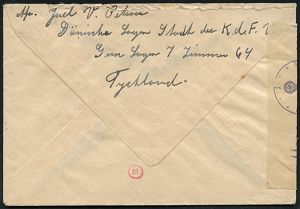 Afs. Juel V. Petersen
Dänische Lager Stadt des K.d.F.
Gem Lager 7 Zimmer 64
Tyskland.